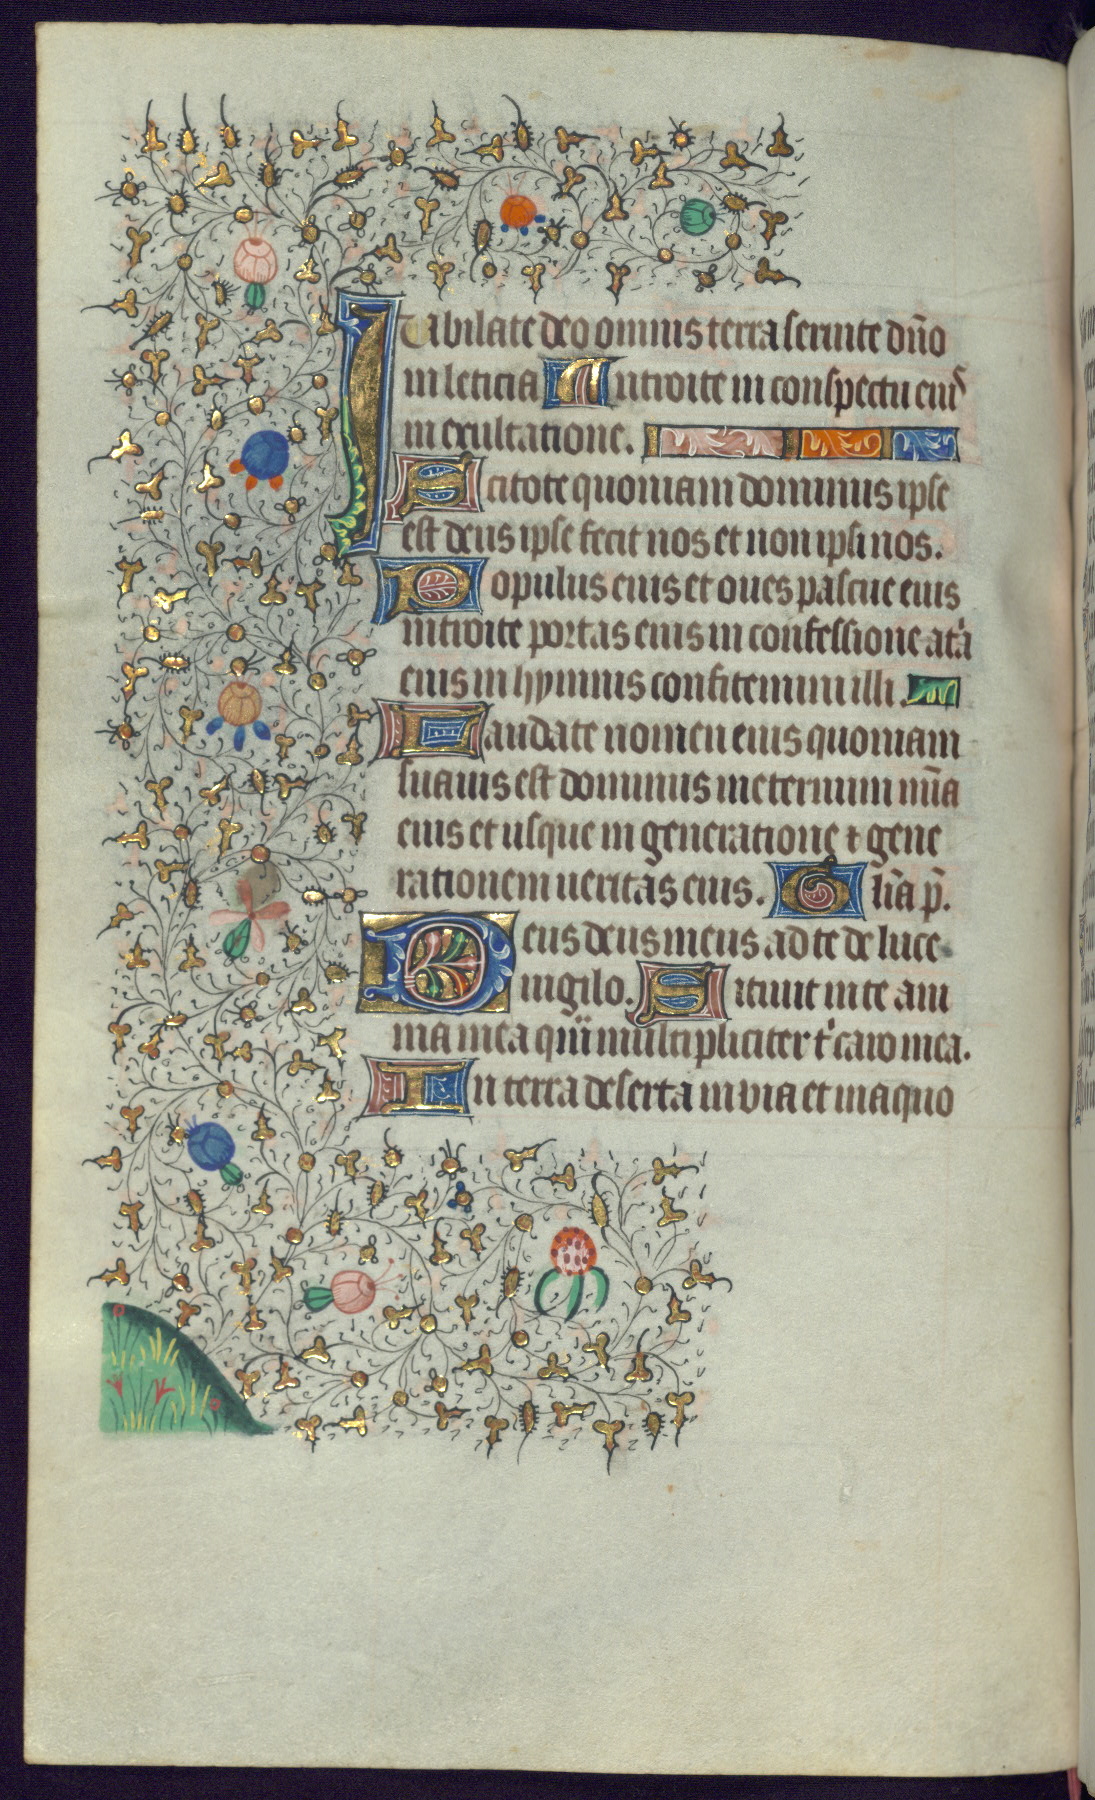 Iubilate deo omnis terra seruite dño
in leticia Introite in conspectu eius
in exultatione.
Scitote quoniam dominus ipse
est deus ipse fecit nos et non ipsi nos.
Populus eius et oues pascue eius
introite portas eius in confessione atͥa
eius in hymnis confitemini illi.
Laudate nomen eius quoniam
suauis est dominus in eternum mīa
eius et usque in generatione ⁊ gene
rationem ueritas eius. Glīa p̄.
Deus deus meus ad te de luce
uigilo. Sitiuit in te ani
ma mea q̄ multipliciter tͥ caro mea.
In terra deserta inuia et inaquo